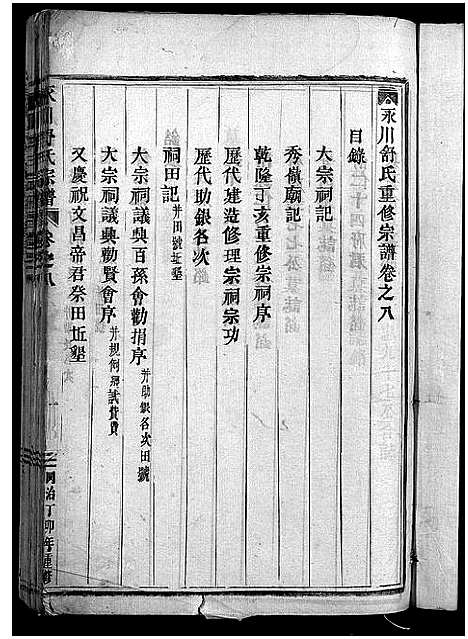 永川舒氏重修宗譜卷之八
目錄
大宗祠記
秀嶺廟記
乾隆丁亥重修宗祠序
歷代建造修理宗祠宗功
歷代助銀名次
祠田記 并田號坵墾
大宗祠議興百孫會勸捐序 并助銀名次田號
大宗祠議興勸賢會序 并規例鄉試贊費
又慶祝文昌帝君祭田坵墾
永川舒氏宗譜 卷之八
同治丁卯年重修